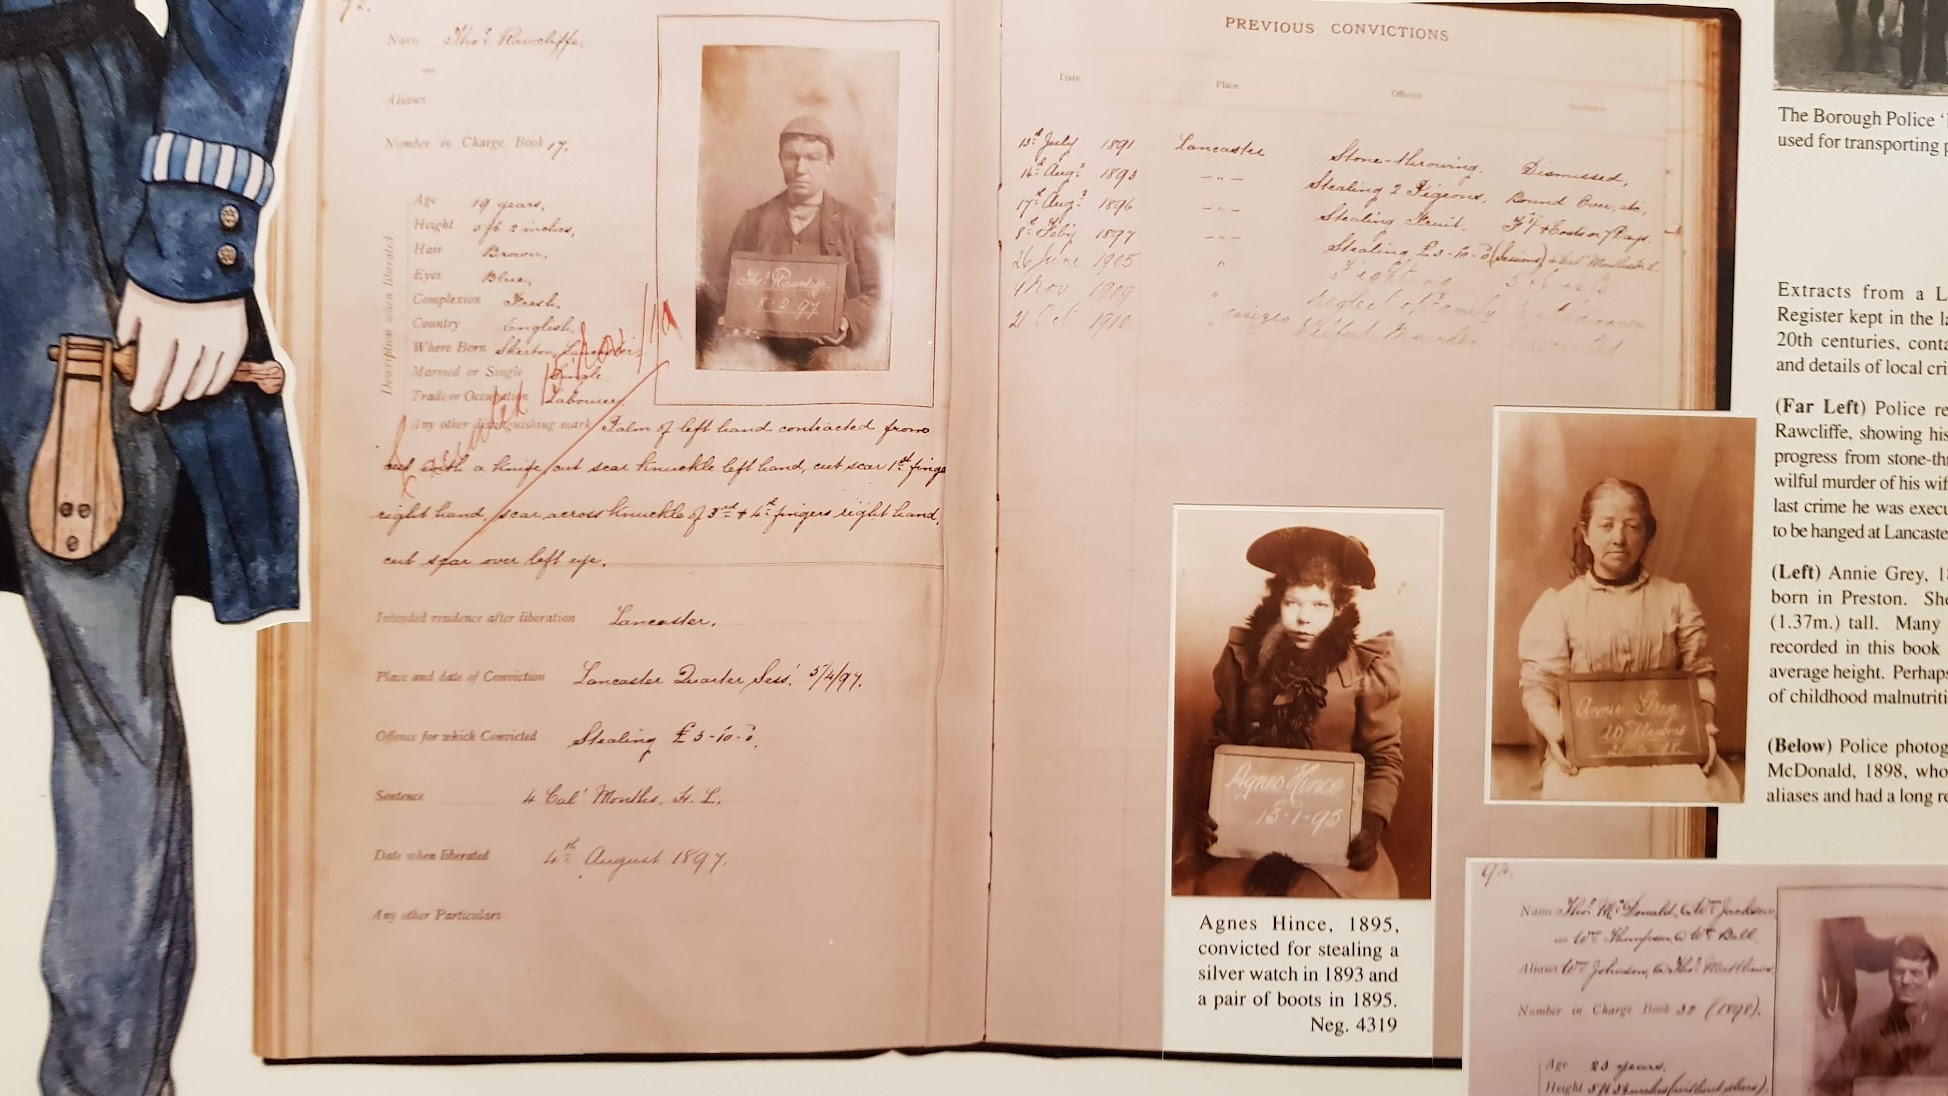 92.
Name Thos. Rawcliffe,
Aliases
Number in Charge Book 17.
Description when liberated
Age 19 years,
Height 5 ft 2 inches,
Hair Brown,
Eyes Blue,
Complexion Fresh,
Country English,
Where Born Skerton, Lancaster,
Married or Single Single
Trade or Occupation Labourer,
Executed 15 Nov/10
Any other distinguishing mark Palm of left hand contracted from
cut with a knife, cut scar knuckle left hand, cut scar 1st finger
right hand, scar across knuckle of 3rd & 4th fingers right hand,
cut scar over left eye.
Intended residence after liberation Lancaster,
Place and date of Conviction Lancaster Quarter Sess. 5/4/97.
Offence for which Convicted Stealing £5-10-0,
Sentence 4 Cal' Months, H. L.
Date when liberated 4th August 1897,
Any other Particulars
Thos. Rawcliffe
8-2-97
PREVIOUS CONVICTIONS.
Date Place Offence Sentence
13th July 1891 Lancaster Stone-throwing, Dismissed,
14th Augt 1893 — " — Stealing 2 Pigeons, Bound Over, etc,
17th Augt 1896 — " — Stealing Fruit. & Costs or 7 Days.
8th Feby 1897 — " — Stealing £5-10-0 (Sessions) 4 Cal' Months H. L.
26 June 1905 " Fighting
1 Nov 1909 " Neglect of Family Withdrawn
21 Oct 1910 " assizes Wilful Murder executed
Agnes Hince
15-1-95
Agnes Hince, 1895,
convicted for stealing a
silver watch in 1893 and
a pair of boots in 1895.
Neg. 4319
Annie Grey
The Borough Police '
used for transporting
Extracts from a L
Register kept in the la
20th centuries, conta
and details of local cri
(Far Left) Police re
Rawcliffe, showing his
progress from stone-th
wilful murder of his wif
last crime he was execu
to be hanged at Lancaste
(Left) Annie Grey, 18
born in Preston. She
(1.37m.) tall. Many
recorded in this book
average height. Perhaps
of childhood malnutriti
(Below) Police photog
McDonald, 1898, who
aliases and had a long re
92.
Name Thos. McDonald, @ Wm Jackson,
Wm Thompson, @ Wm Ball,
Aliases Wm Johnson, @ Thos. Matthews,
Number in Charge Book 32 (1898).
Age 23 years,
Height 5 ft 3¼ inches (without shoes).